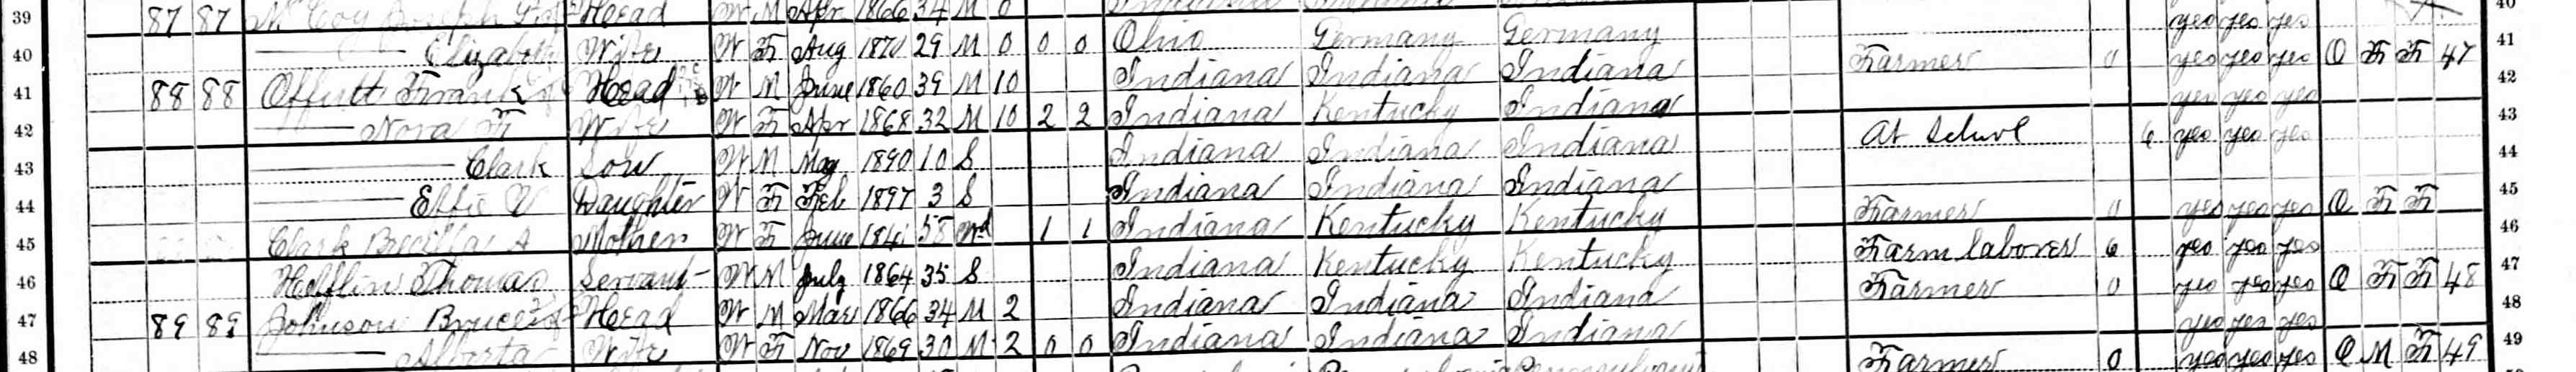 39 87 87 McCoy Head W M Apr 1866 34 M 0 yes yes yes 40
40 —— Elizabeth Wife W F Aug 1870 29 M 0 0 0 Ohio Germany Germany 41
41 88 88 Offutt Frank Head W M June 1860 39 M 10 Indiana Indiana Indiana Farmer 0 yes yes yes O F F 47 42
42 —— Nora F Wife W F Apr 1868 32 M 10 2 2 Indiana Kentucky Indiana yes yes yes 43
43 —— Clark Son W M May 1890 10 S Indiana Indiana Indiana At School 6 yes yes yes 44
44 —— Effie V Daughter W F Feb 1897 3 S Indiana Indiana Indiana 45
45 Clark A Mother W F June 184 58 Wd 1 1 Indiana Kentucky Kentucky Farmer 0 yes yes yes O F F 46
46 Hefflin Thomas Servant W M July 1864 35 S Indiana Kentucky Kentucky Farm laborer 6 yes yes yes 47
47 89 89 Johnson Bruce Head W M Mar 1866 34 M 2 Indiana Indiana Indiana Farmer 0 yes yes yes O F F 48 48
48 —— Alberta Wife W F Nov 1869 30 M 2 0 0 Indiana Indiana Indiana yes yes yes 49
Farmer 0 yes yes yes O M F 49